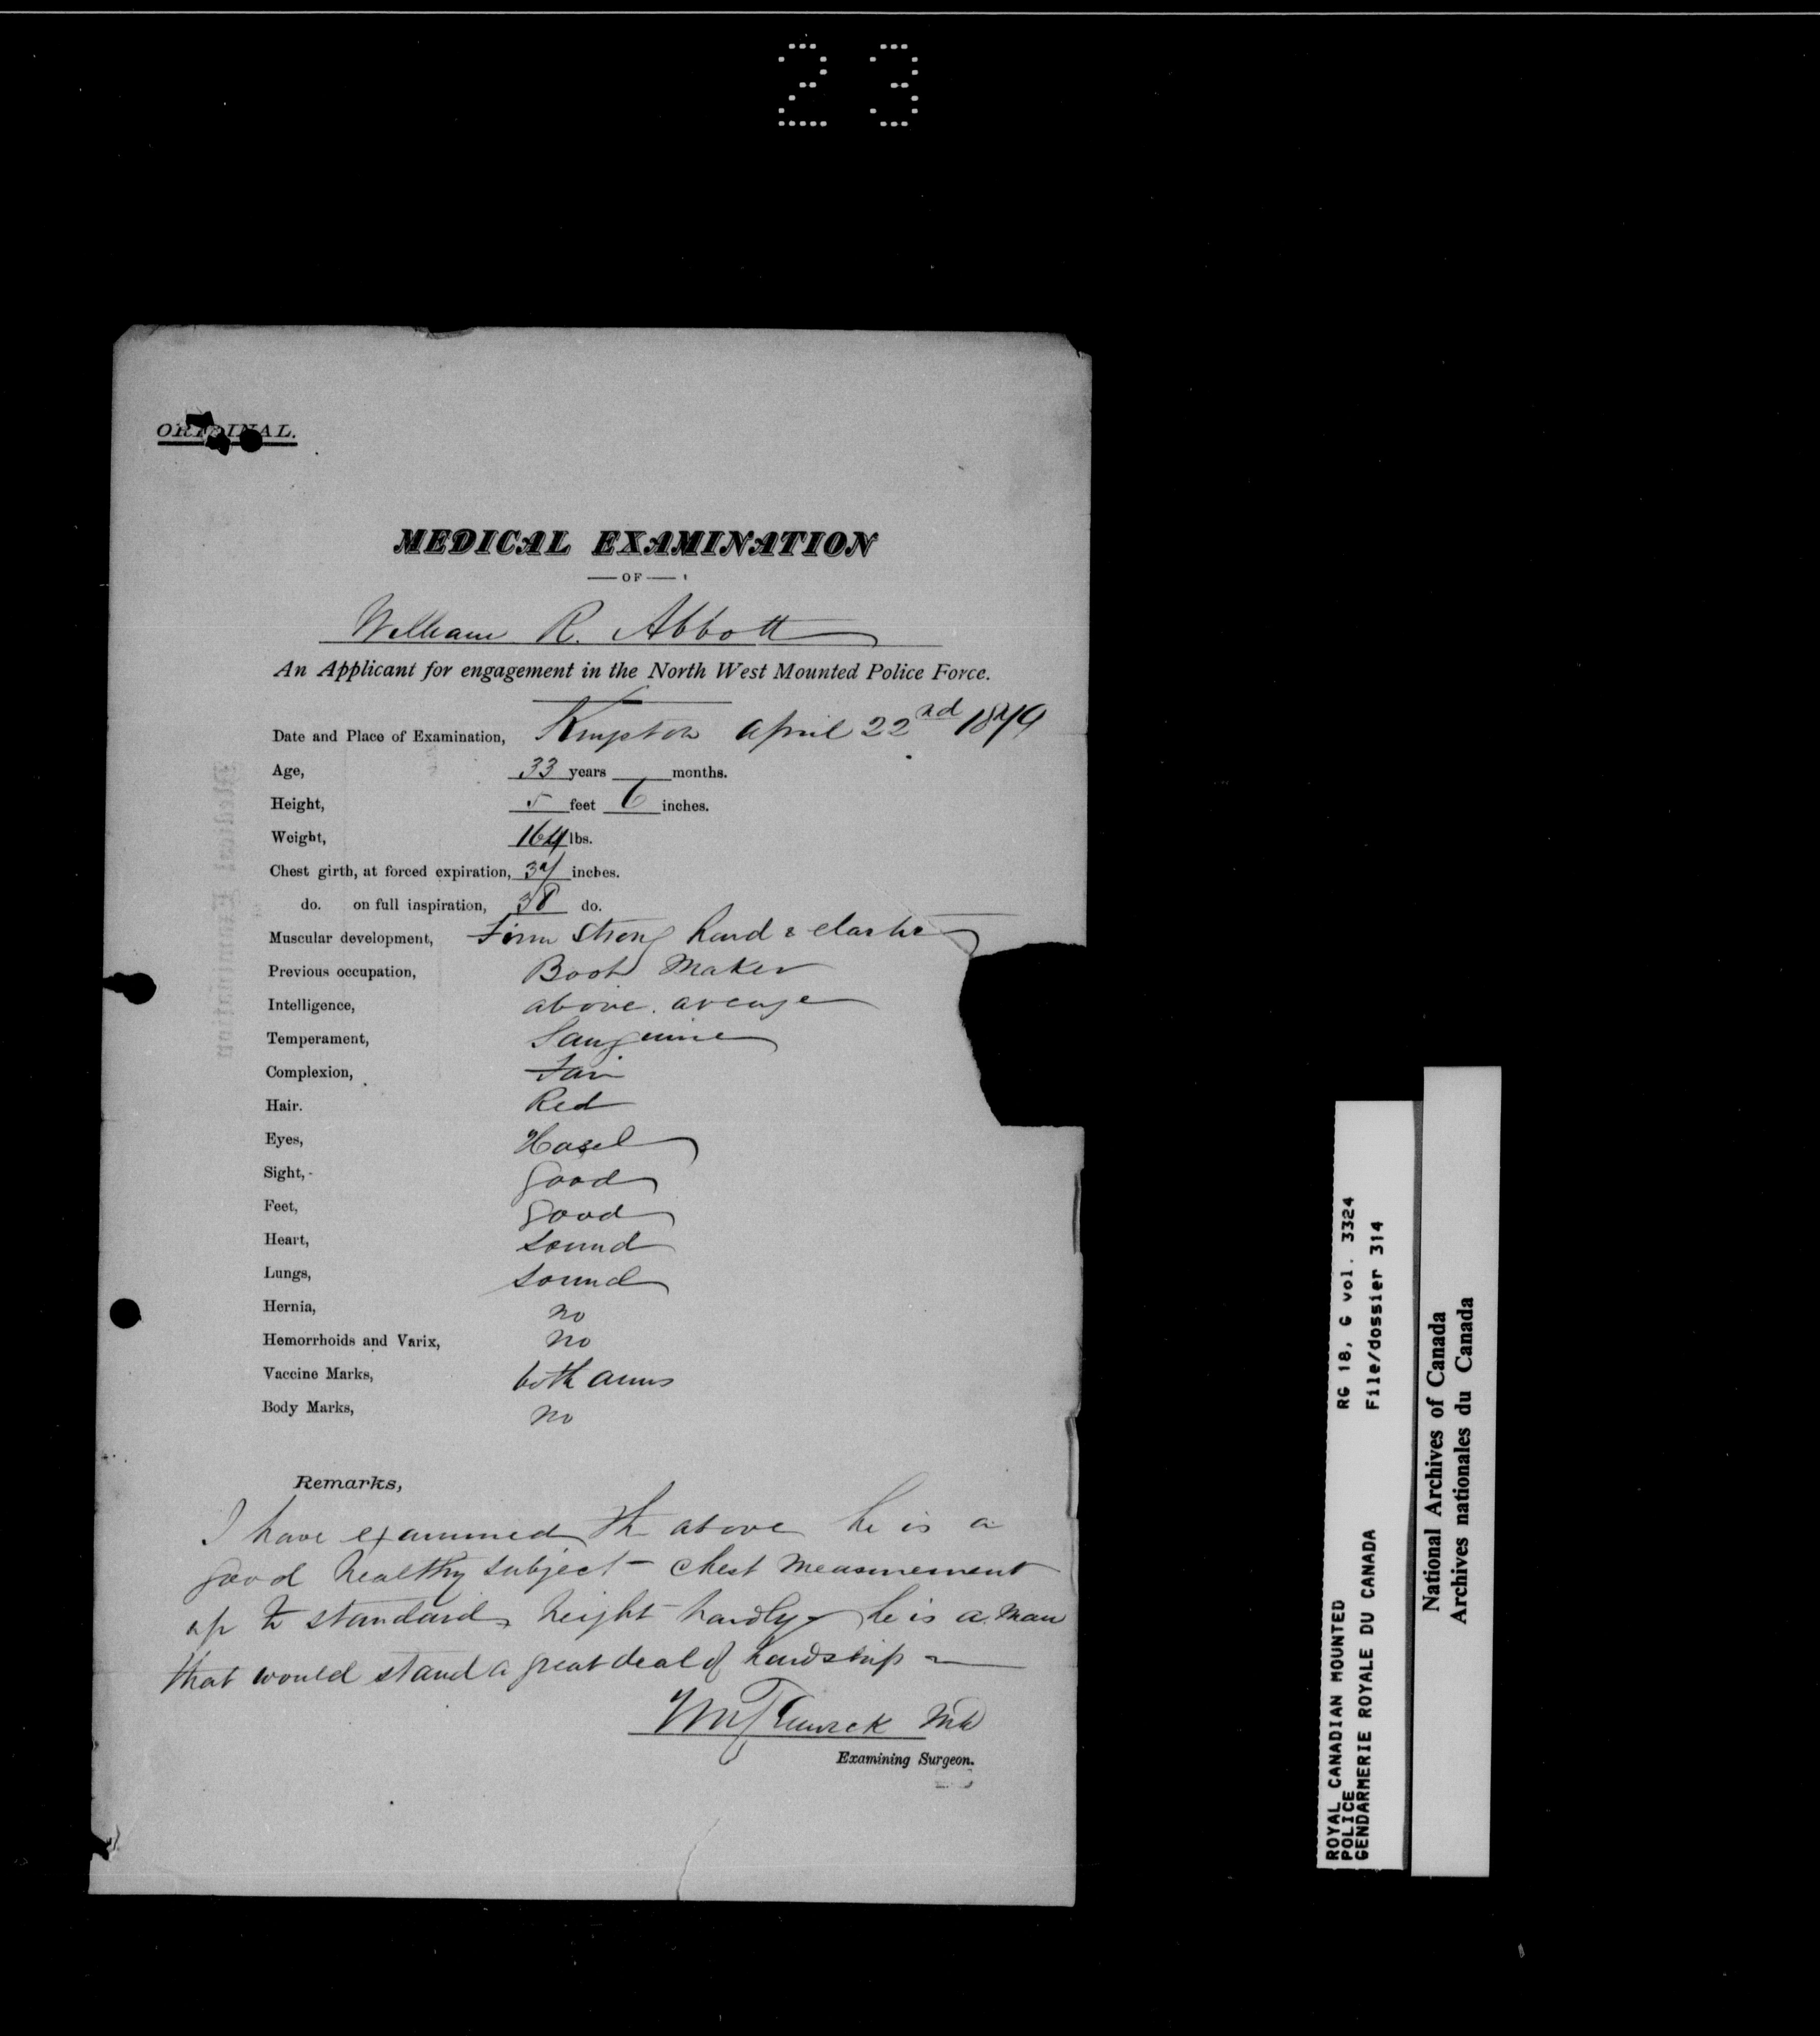 23
ORIGINAL.
MEDICAL EXAMINATION
OF
William R. Abbott
An Applicant for engagement in the North West Mounted Police Force.
Date and Place of Examination, Kingston April 22nd 1879
Age, 33 years months.
Height, 5 feet 6 inches.
Weight, 164 lbs.
Chest girth, at forced expiration, inches.
do. on full inspiration, 38 do.
Muscular development, Firm strong hard & elastic
Previous occupation, Boot Maker
Intelligence, above average
Temperament, Sanguine
Complexion, Fair
Hair. Red
Eyes, Hasel
Sight, good
Feet, good
Heart, sound
Lungs, sound
Hernia, no
Hemorrhoids and Varix, no
Vaccine Marks, both arms
Body Marks, no
Remarks,
I have examined the above he is a
good healthy subject - chest measurement
up to standard, height hardly - he is a man
that would stand a great deal of hardship
MD
Examining Surgeon.
ROYAL CANADIAN MOUNTED RG 18, G vol. 3324
POLICE
GENDARMERIE ROYALE DU CANADA File/dossier 314
National Archives of Canada
Archives nationales du Canada